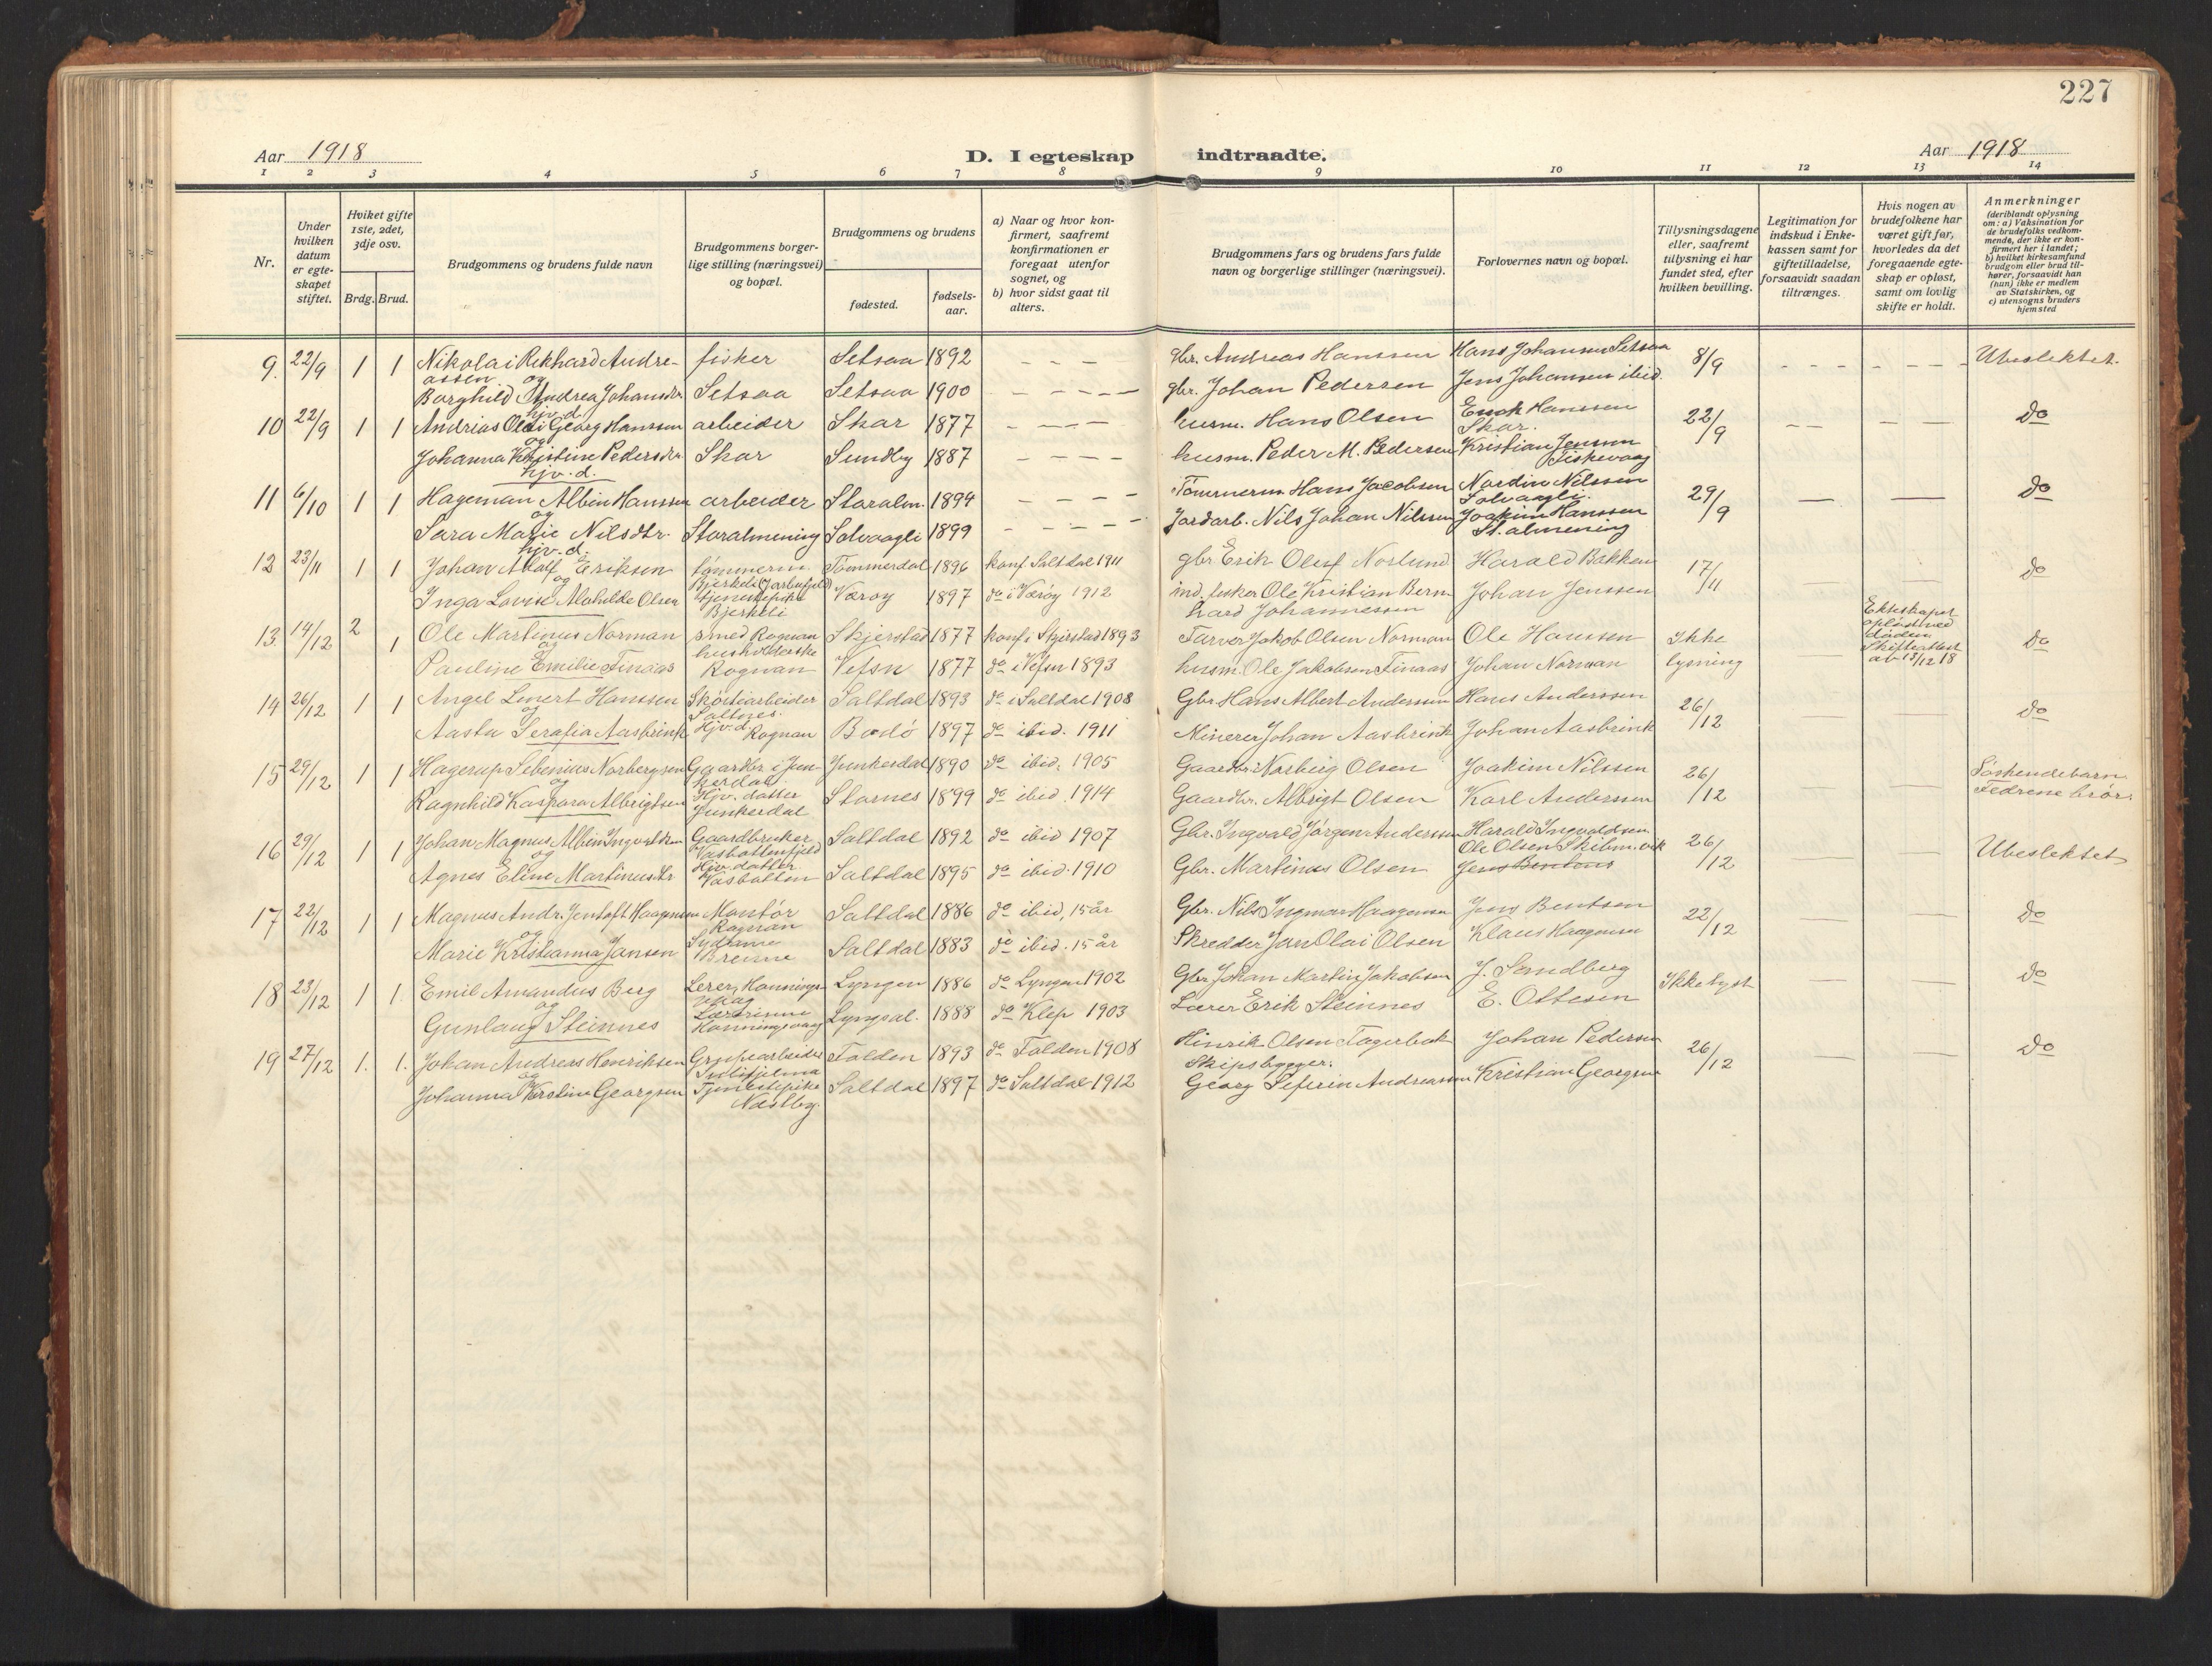 227
Aar 1918
D. I egteskap indtraadte.
Aar 1918
1 2 3 4 5 6 7 8 9 10 11 12 13 14
Nr.
Under hvilken datum er egteskapet stiftet.
Hviket gifte 1ste, 2det, 3dje osv.
Brdg. Brud.
Brudgommens og brudens fulde navn
Brudgommens borgerlige stilling (næringsvei) og bopæl.
Brudgommens og brudens
fødested.
fødselsaar.
a) Naar og hvor konfirmert, saafremt konfirmationen er foregaat utenfor sognet, og
b) hvor sidst gaat til alters.
Brudgommens fars og brudens fars fulde navn og borgerlige stillinger (næringsvei).
Forlovernes navn og bopæl.
Tillysningsdagene eller, saafremt tillysning ei har fundet sted, efter hvilken bevilling.
Legitimation for indskud i Enkekassen samt for giftetilladelse, forsaavidt saadan tiltrænges.
Hvis nogen av brudefolkene har været gift før, hvorledes da det foregaaende egteskap er opløst, samt om lovlig skifte er holdt.
Anmerkninger
(deriblandt oplysning om: a) Vaksination for de brudefolks vedkommende, der ikke er konfirmert her i landet; b) hvilket kirkesamfund brudgom eller brud tilhører, forsaavidt han (hun) ikke er medlem av Statskirken, og c) utensogns bruders hjemsted
9. 22/9 1 1 Nikolai Rikhard Andreassen fisker Setsaa 1892 gbr. Andreas Hanssen Hans Johansen Setsaa 8/9 Ubeslektet.
og
Borghild Andrea Johansdr Setsaa Setsaa 1900 gbr. Johan Pedersen Jens Johansen ibid.
hjv. d.
10 22/9 1 1 Andrias Olai Georg Hanssen arbeider Skar 1877 husm. Hans Olsen Enok Hanssen Skar. 22/9 do
og
Johanna Kristine Pedersdr Skar Sundby 1887 husm. Peder M. Pedersen Kristian Jensen Fiskevaag
hjv. d.
11 6/10 1 1 Hageman Albin Hanssen arbeider Storalm. 1894 Tømmerm. Hans Jacobsen Nordin Nilssen Solvaagli. 29/9 do
og
Sara Marie Nilsdtr. Storalmening Solvaagli 1899 Jordarb. Nils Johan Nilssen Joakim Hanssen St. almening
hjv. d.
12 23/11 1 1 Johan Adolf Eriksen tømmerm. Tømmerdal 1896 konf. Saltdal 1911 gbr Erik Oluf Norlund Harald Bakken 17/11 do
og
Inga Lovise Mathilde Olsen tjenestepike Bjerkeli Værøy 1897 do i Værøy 1912 ind. fisker Ole Kristian Bernhard Johannessen Johan Jenssen
13. 14/12 2 1 Ole Martinus Norman smed Rognan Skjerstad 1877 konf. i Skjerstad 1893 Farver Jakob Olsen Norman Ole Hanssen Ikke lysning Ekteskapet opløst ved døden Skifteattest av 13/12 18 do
og
Pauline Emilie Finaas husholderske Rognan Vefsn 1877 do i Vefsn 1893 husm. Ole Jakobsen Finaas Johan Norman
14 26/12 1 1 Angel Linert Hanssen Skofløiarbeider Saltnes. Saltdal 1893 do i Saltdal 1908 Gbr Hans Albert Anderssen Hans Anderssen 26/12 do
og
Aasta Serafia Aasbrink Hjv. d. Rognan Bodö 1897 do ibid. 1911 Minerer Johan Aasbrink Johan Aasbrink
15 29/12 1 1 Hagerup Sebenius Norbergsen Gaardbr. i Junkerdal Junkerdal 1890 do ibid. 1905 Gaardbr. Norberg Olsen Joakim Nilssen 26/12 Söskendebarn Fedrene brör.
og
Ragnhild Kaspara Albrigtsen Hjv. datter Junkerdal Stornes 1899 do ibid. 1914 Gaardbr. Albrigt Olsen Karl Anderssen
16 29/12 1 1 Johan Magnus Albin Ingvaldsen Gaardbruker Vasbottenfjeld Saltdal 1892 do ibid 1907 Gbr. Ingvald Jörgen Anderssen Harald Ingvaldsen 26/12 Ubeslektet
og
Agnes Eline Martinusdr Hjv. datter Vasbotten Saltdal 1895 do ibid. 1910 Gbr. Martinus Olsen Ole Olsen Skibm.vik
17 22/12 1 1 Magnus Andr. Jentoft Haagensen Montör Rognan Saltdal 1886 do ibid, 15 år Gbr. Nils Ingmar Haagensen Jens Bentsen 22/12 do
og
Marie Kristianna Jansen Sydame Breime Saltdal 1883 do ibid. 15 år Skredder Jan Olai Olsen Klaus Haagensen
18 23/12 1 1. Emil Amandus Berg Lerer, Honningsvaag Lyngen 1886 do Lyngen 1902 Gbr Johan Martin Jakobsen J. Sandberg Ikke lyst do
og
Gunlaug Steinnes Lærerinne Honningsvaag Lyngsal. 1888 do Klep 1903 Lærer Erik Steinnes E. Ottesen
19 27/12 1. 1. Johan Andreas Henriksen Grubearbeider Sulitjelma Folden 1893 do Folden 1908 Hinrik Olsen Fagerbak Johan Pedersen 26/12 do
og
Johanna Kirstine Georgsen Tjenestepike Næstby. Saltdal 1897 do Saltdal 1912 Skipsbygger. Georg Seferin Andreassen Kristian Georgsen